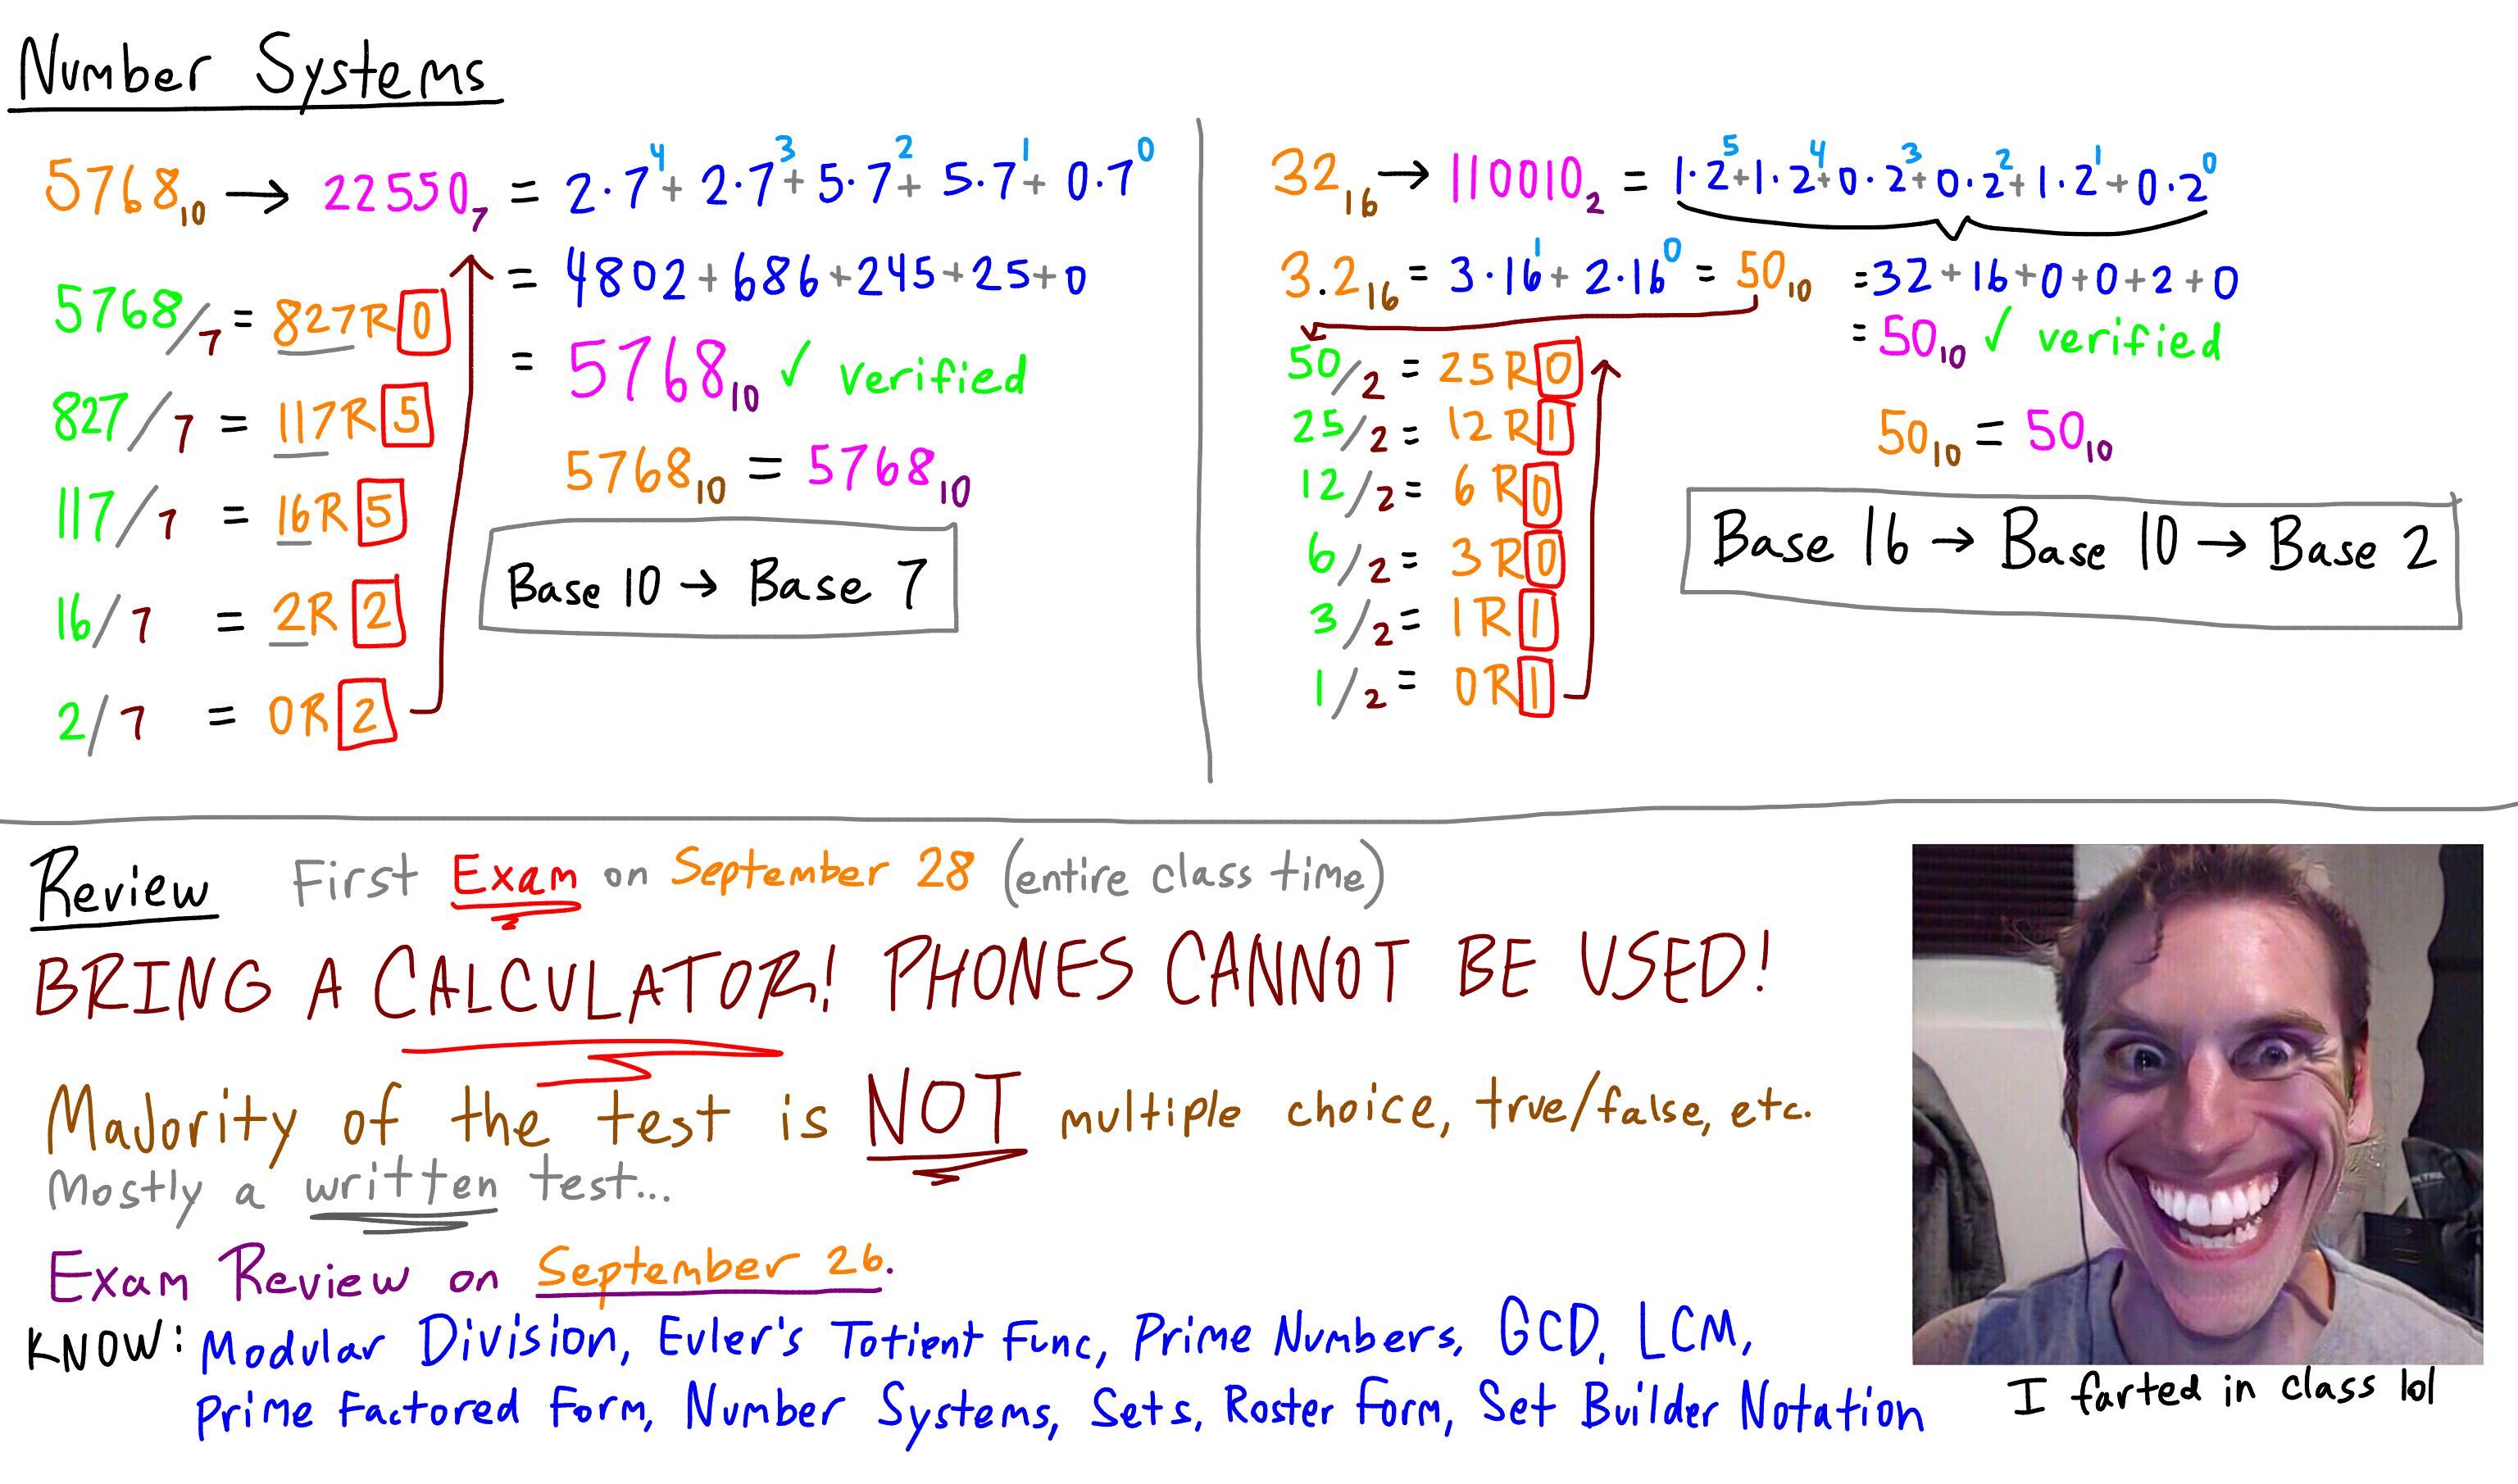 Number Systems
5768₁₀ → 22550₇ = 2·7⁴ + 2·7³ + 5·7² + 5·7¹ + 0·7⁰
= 4802 + 686 + 245 + 25 + 0
= 5768₁₀ ✓ verified
5768₁₀ = 5768₁₀
5768/7 = 827R 0
827/7 = 117R 5
117/7 = 16R 5
16/7 = 2R 2
2/7 = 0R 2
Base 10 → Base 7
32₁₆ → 110010₂ = 1·2⁵ + 1·2⁴ + 0·2³ + 0·2² + 1·2¹ + 0·2⁰
3.2₁₆ = 3·16¹ + 2·16⁰ = 50₁₀
= 32 + 16 + 0 + 0 + 2 + 0
= 50₁₀ ✓ verified
50₁₀ = 50₁₀
50/2 = 25 R 0
25/2 = 12 R 1
12/2 = 6 R 0
6/2 = 3 R 0
3/2 = 1 R 1
1/2 = 0 R 1
Base 16 → Base 10 → Base 2
Review First Exam on September 28 (entire class time)
BRING A CALCULATOR! PHONES CANNOT BE USED!
Majority of the test is NOT multiple choice, true/false, etc.
Mostly a written test...
Exam Review on September 26.
KNOW: Modular Division, Euler's Totient Func, Prime Numbers, GCD, LCM,
Prime Factored Form, Number Systems, Sets, Roster Form, Set Builder Notation
I farted in class lol